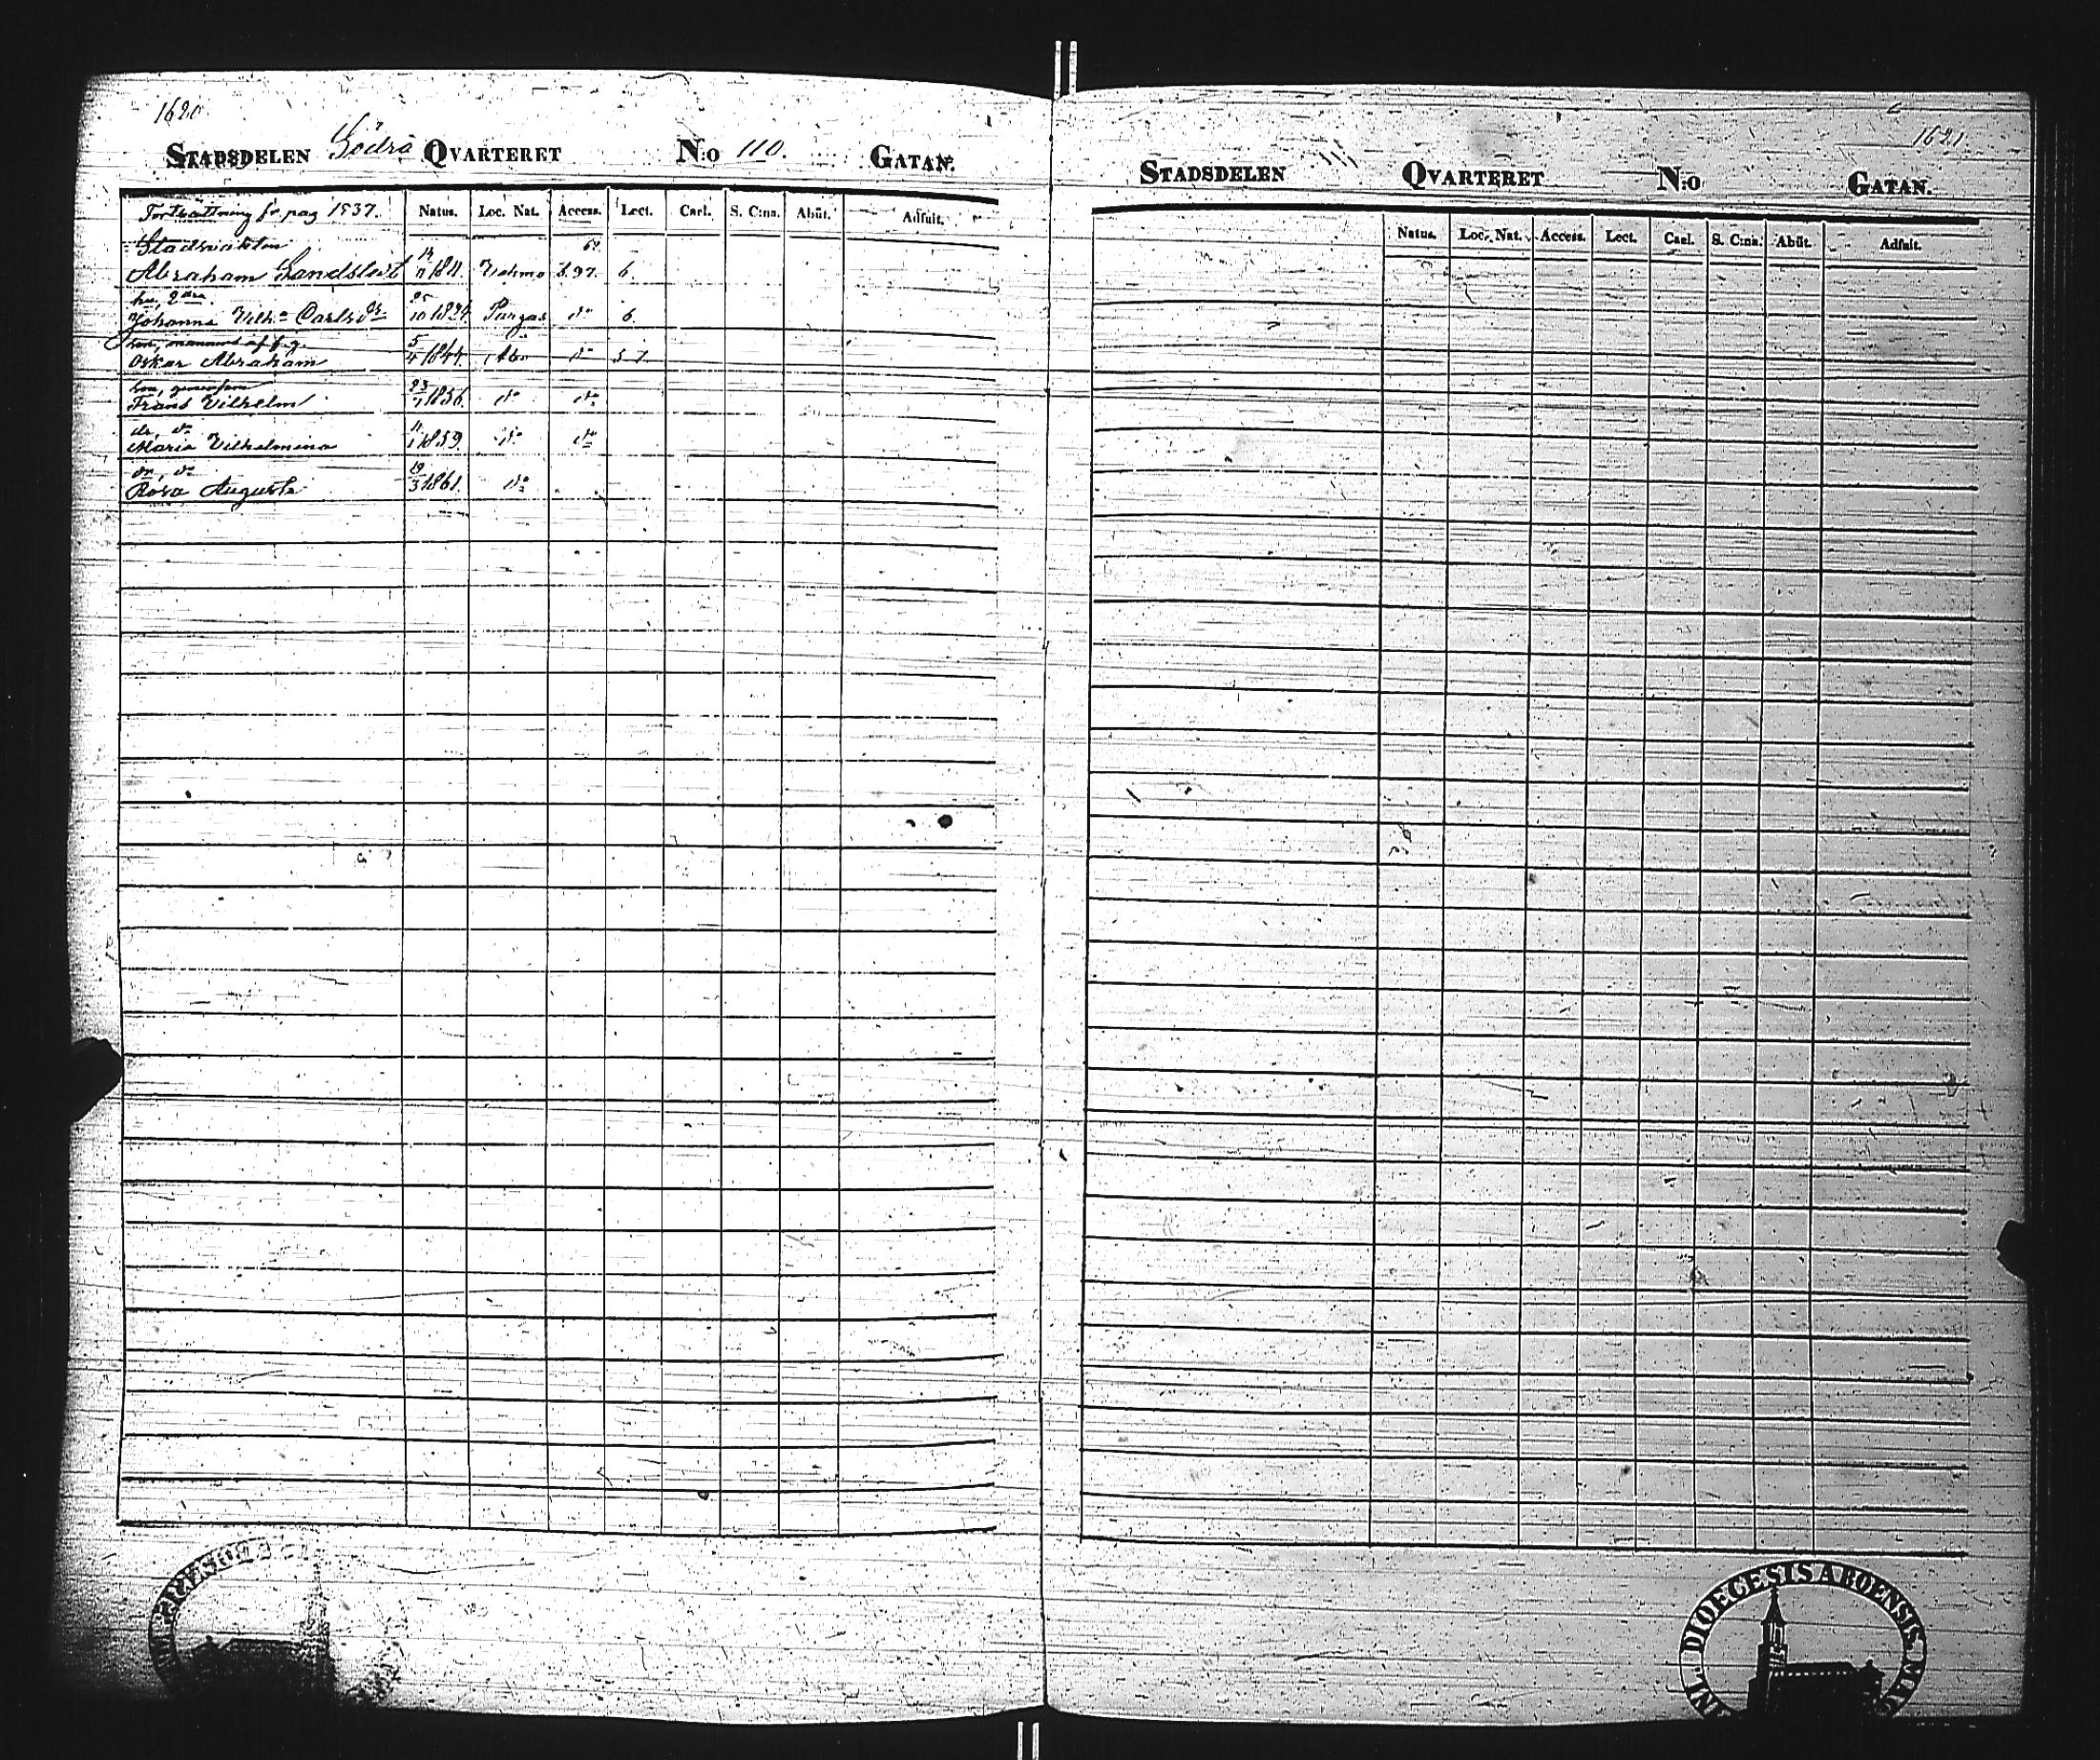 1620
STADSDELEN Södra QVARTERET N:o 110. GATAN.
Fortsättning fr pag 1537. Natus. Loc. Nat. Access. Lect. Cael. S. Cœna. Abiit. Adfuit.
Stadsvakten 62
Abraham Sandstedt 14/11 1811. Vehmo s. 97. b.
hu, 2dra
Johanna Vilh:a Carlsdr 25/10 1824. Pargas do b.
son, af f.g.
Oskar Abraham 5/4 1844. Åbo do
son, gemensam
Frans Vilhelm 23/7 1856. do do
dr, do
Maria Vilhelmina 11/1 1859. do do
dr, do
Rosa Augusta 19/3 1861. do
1621.
STADSDELEN QVARTERET N:o GATAN.
Natus. Loc. Nat. Access. Lect. Cael. S. Cœna. Abiit. Adfuit.
DIOECESIS ABOENSIS